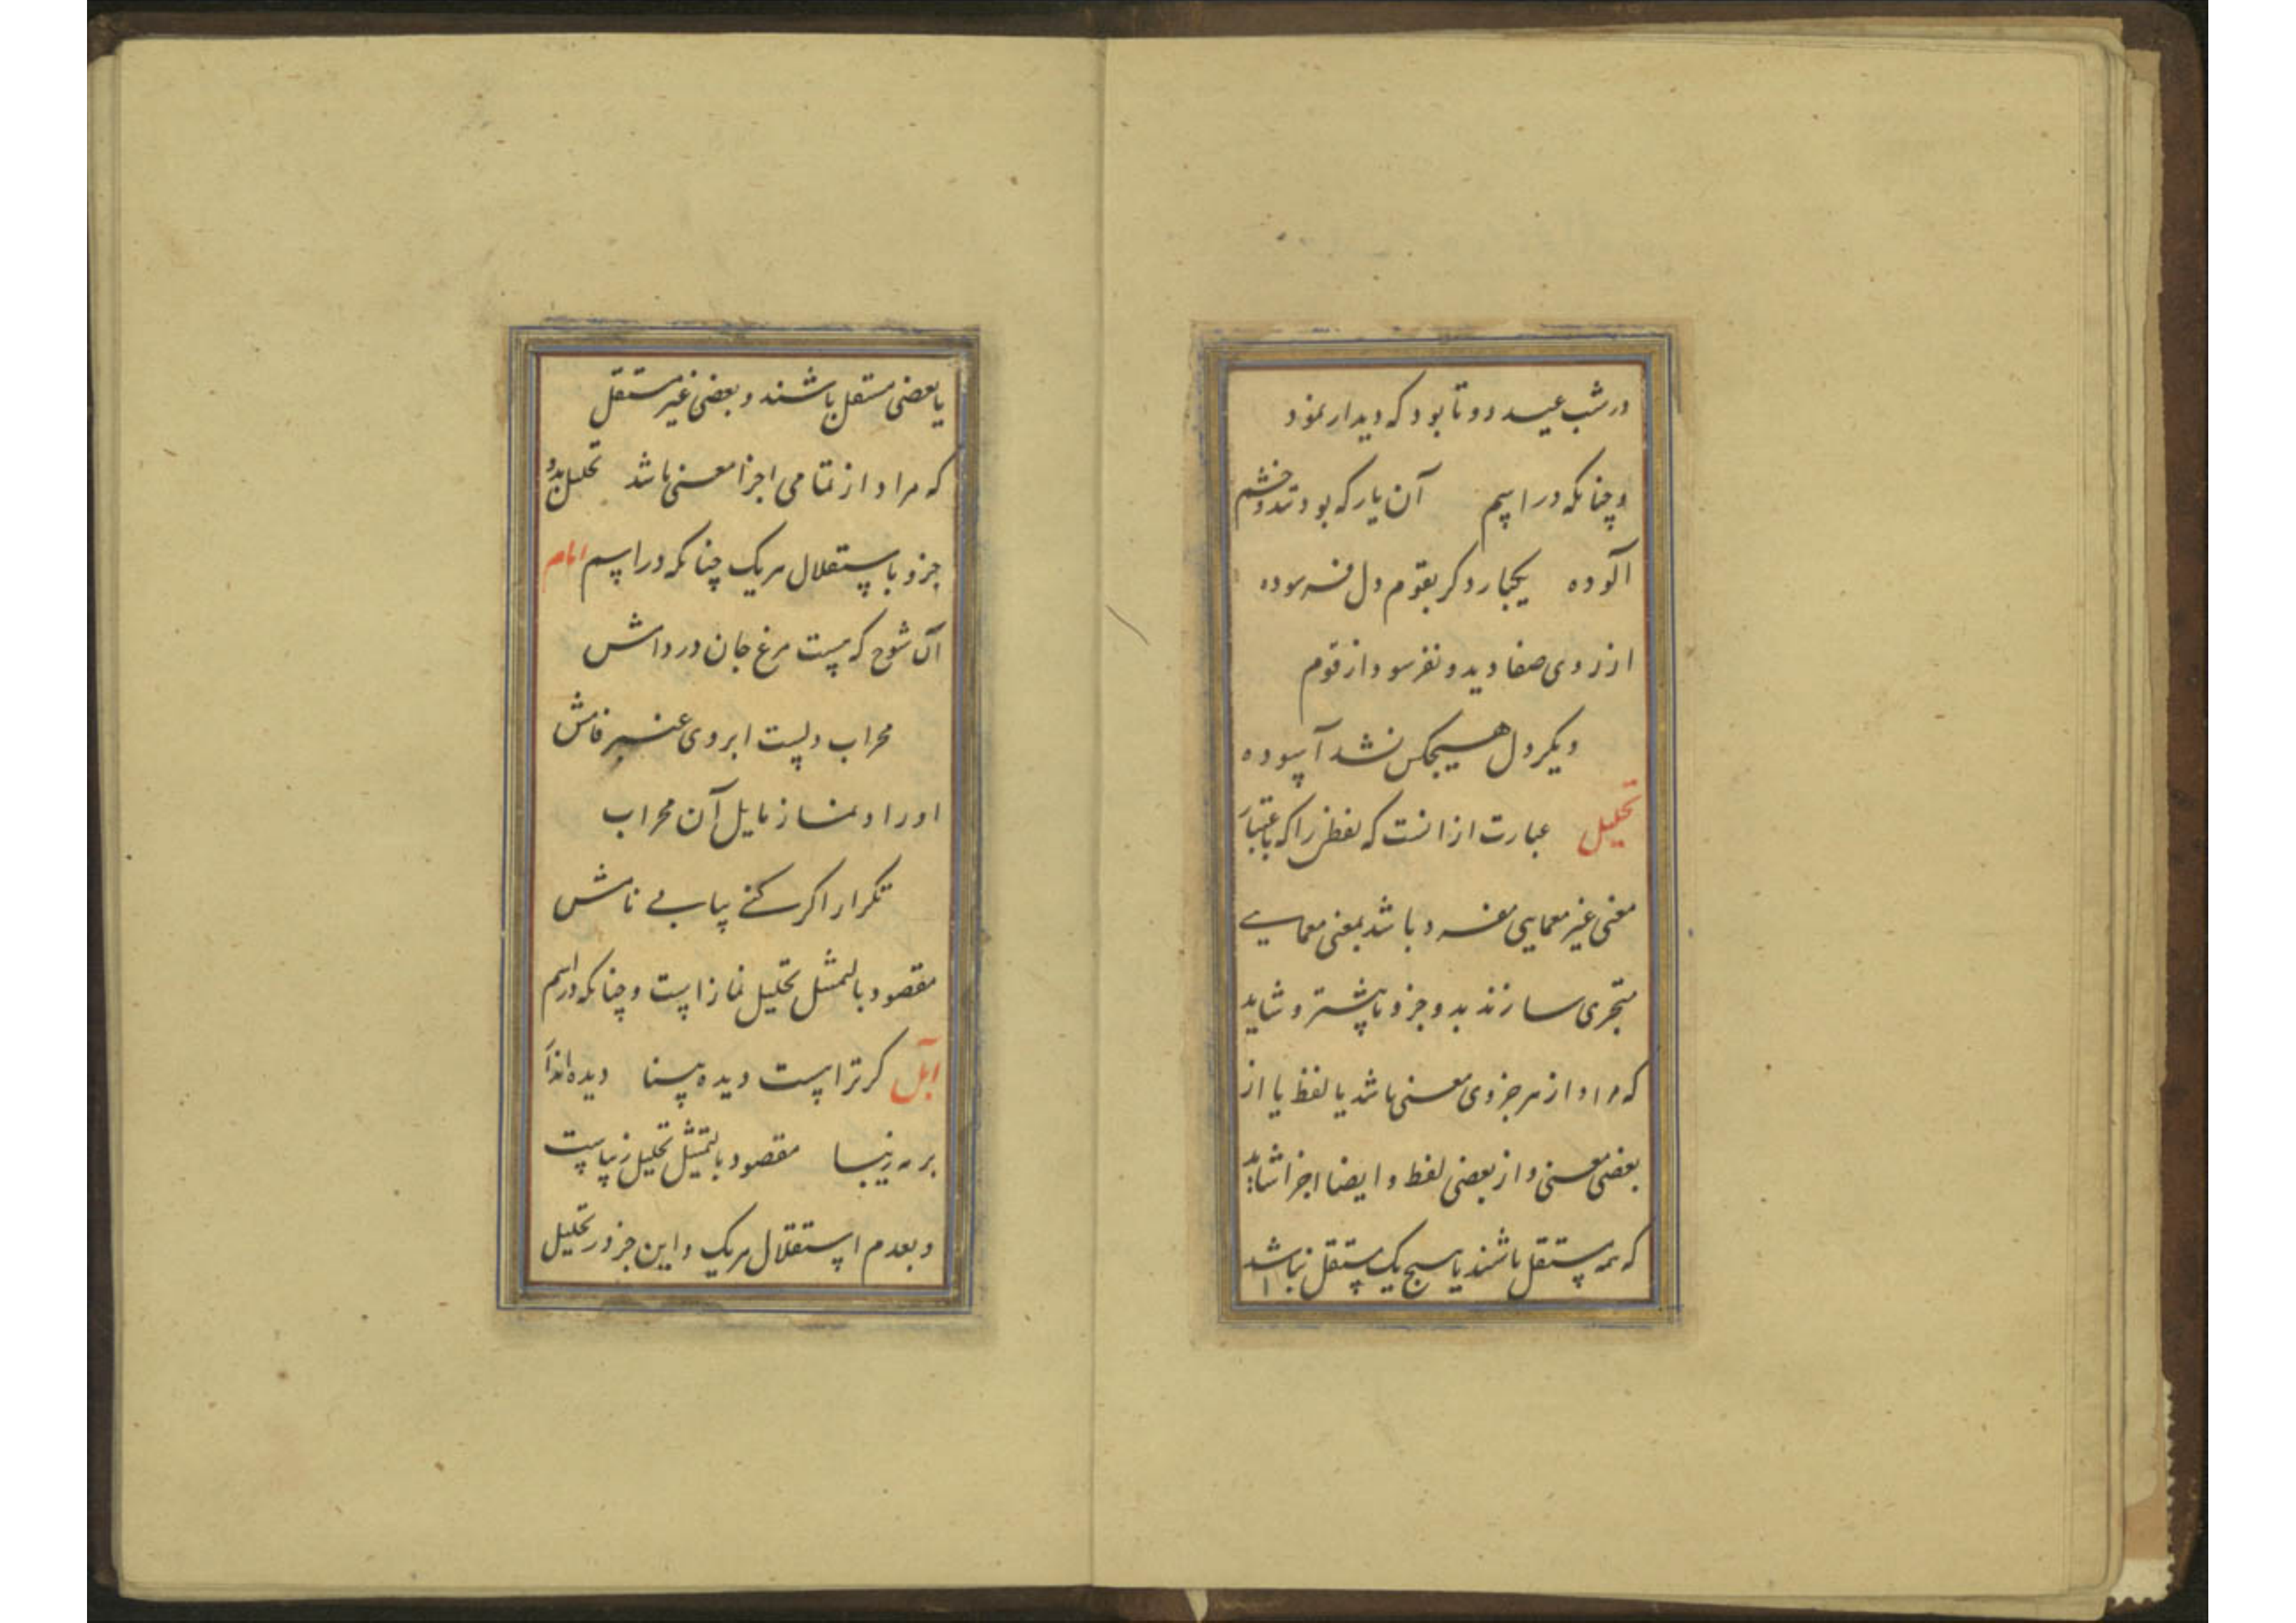 در شب عید دوتا بود که دیدار نمود
و چنانکه در اسم آن یار که بود تند و خشم
آلوده یکبار دگر بقوم دل فرسوده
از روی صفا دید و نفرسود از قوم
دیگر دل هیچکس نشد آسوده
تحلیل عبارت از انست که لفظی را که باعتبار
معنی غیر معمایی مفرد باشد بمعنی معمایی
متجزی سازند بدو جزو یا بیشتر و شاید
که مراد از هر جزوی معنی باشد یا لفظ یا از
بعضی معنی و از بعضی لفظ و ایضا اجزا شاید
که همه مستقل باشند یا هیچ یک مستقل نباشد
یا بعضی مستقل باشند و بعضی غیر مستقل
که مراد از تمامی اجزا معنی باشد تحلیل بدو
جزو باستقلال هر یک چنانکه در اسم امام
آن شوخ که هست مرغ جان در دامش
محراب دلست ابروی عنبر فامش
او را و نماز مایل آن محراب
تکرار اگر کنی بیابی نامش
مقصود بالتمثیل تحلیل نماز است و چنانکه در اسم
ابل گر ترا هست دیده بینا دیده اندا
بر مه زیبا مقصود بالتمثیل تحلیل زیباست
و بعدم استقلال هر یک و این جزو در تحلیل